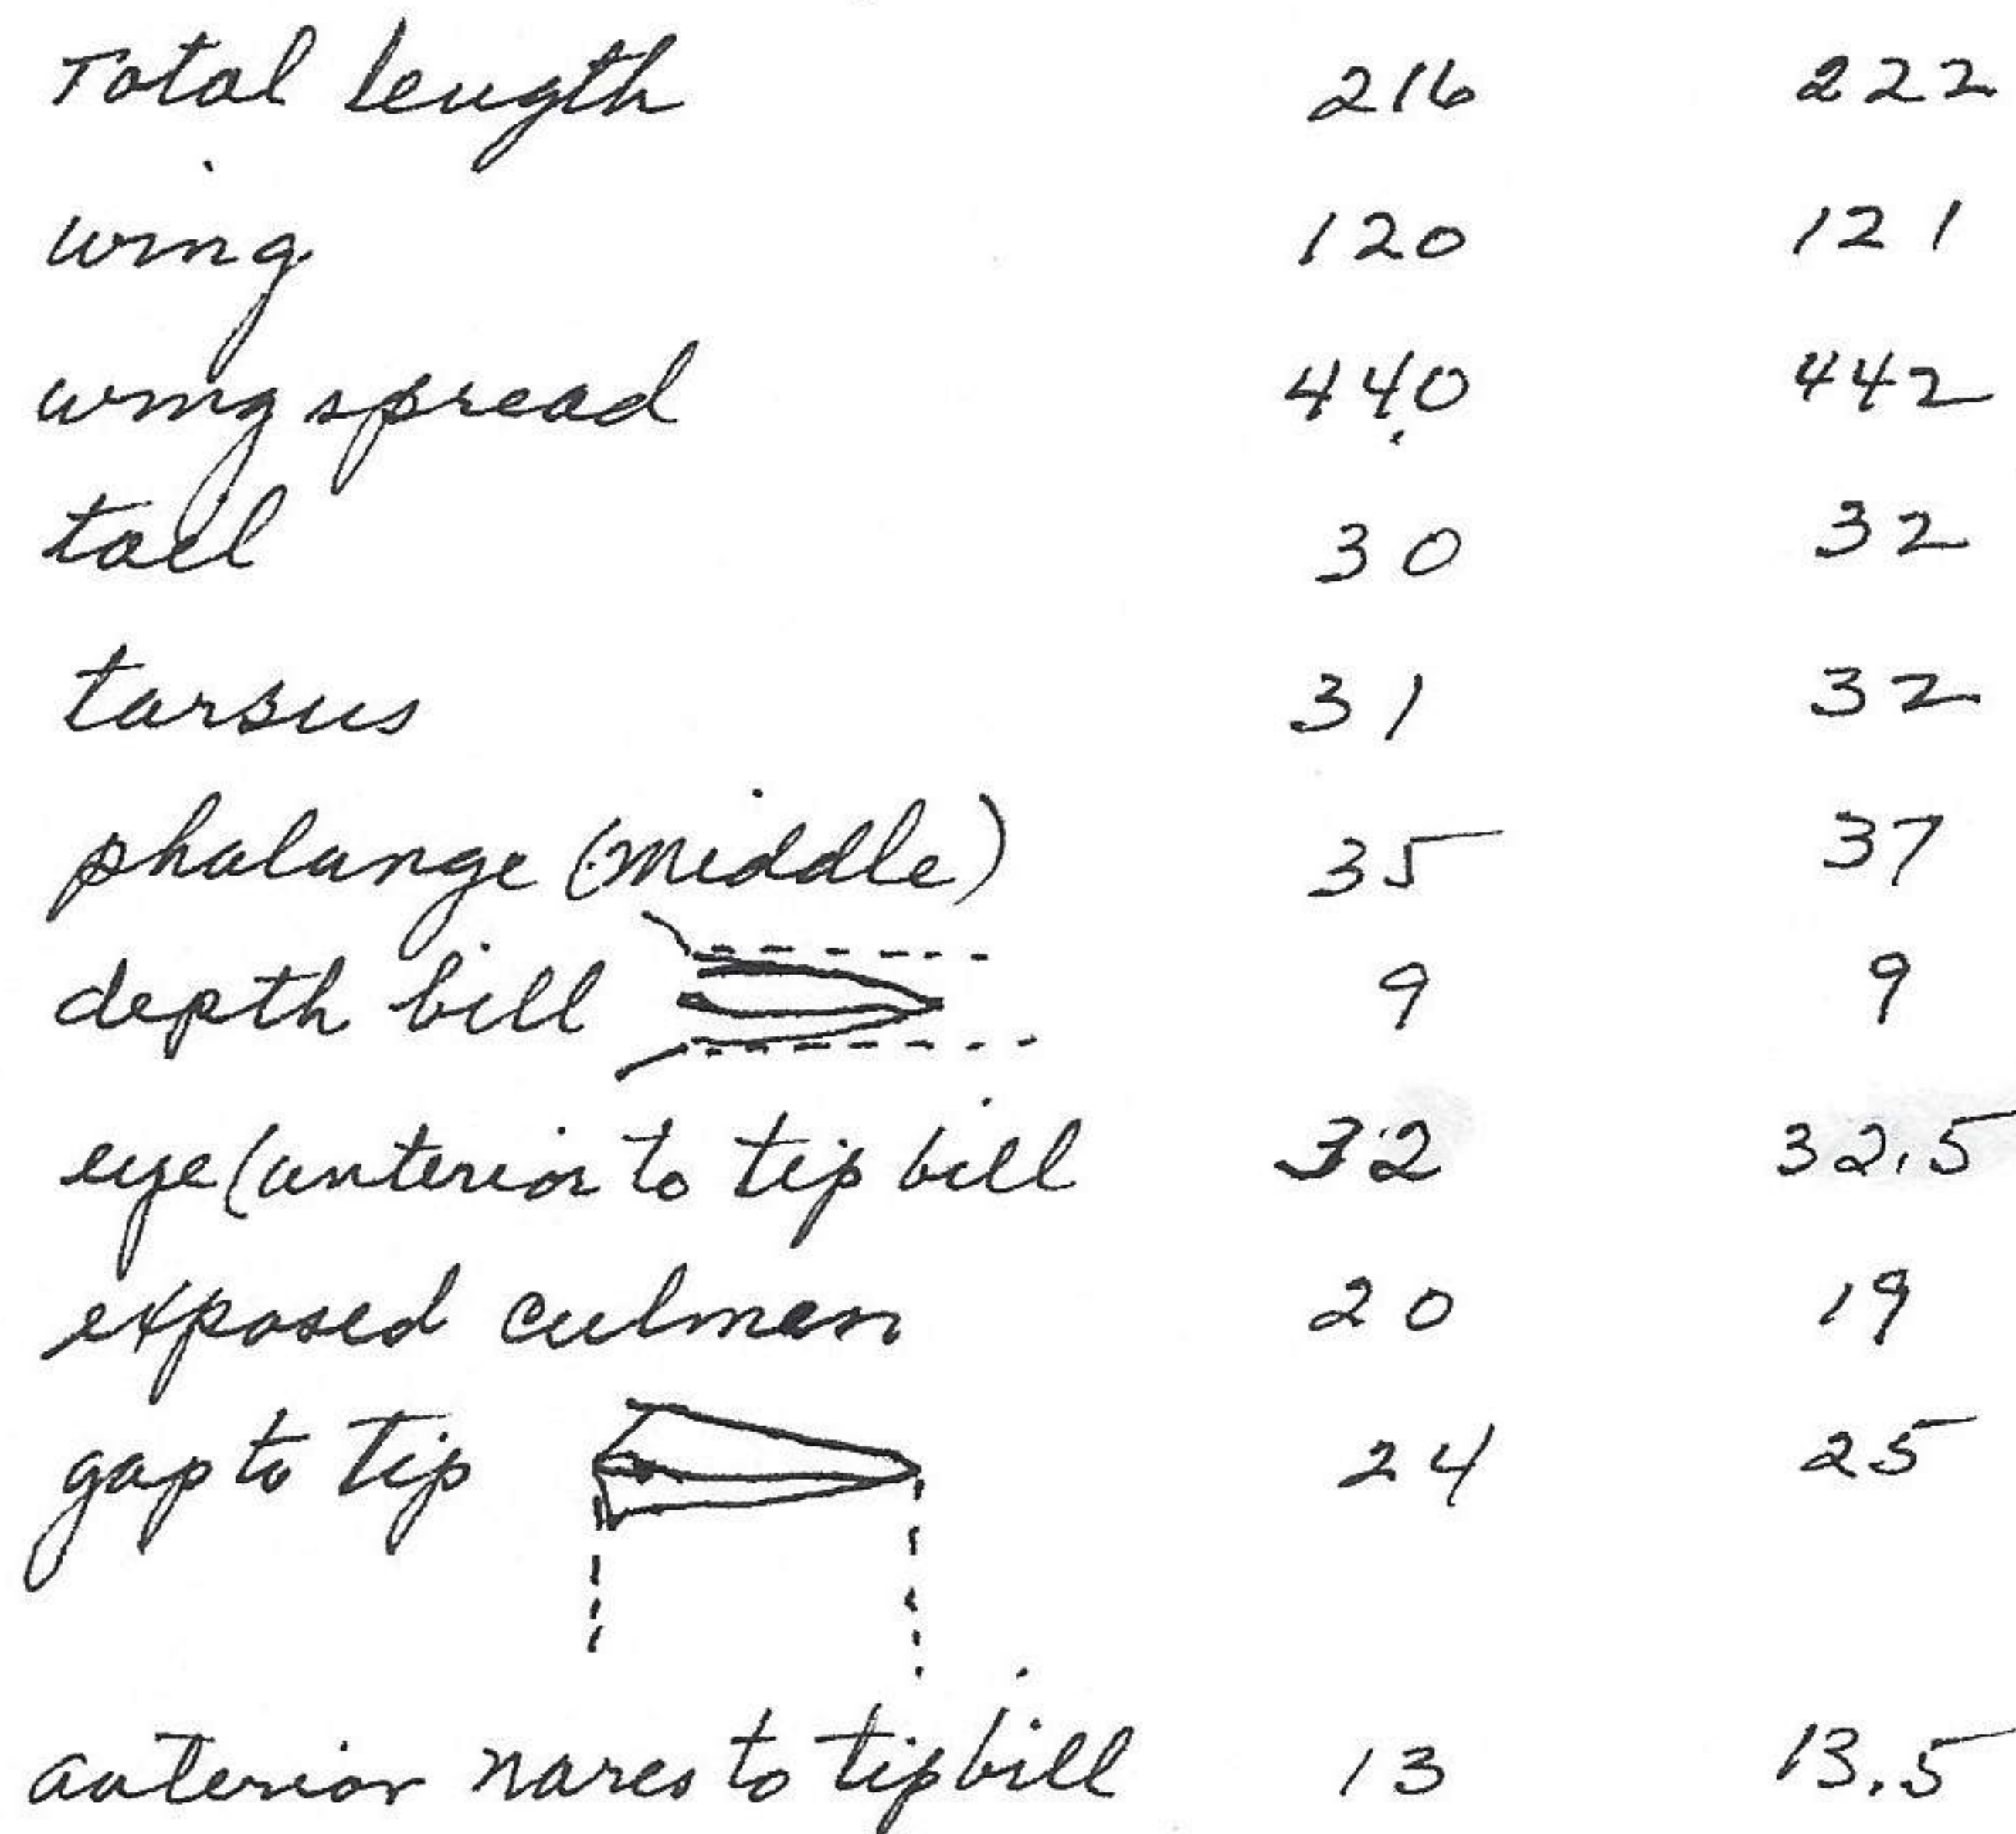 Total length 216 222
wing 120 121
wing spread 440 442
tail 30 32
tarsus 31 32
phalange (middle) 35 37
depth bill 9 9
eye (anterior to tip bill 32 32.5
exposed culmen 20 19
gap to tip 24 25
anterior nares to tip bill 13 13.5